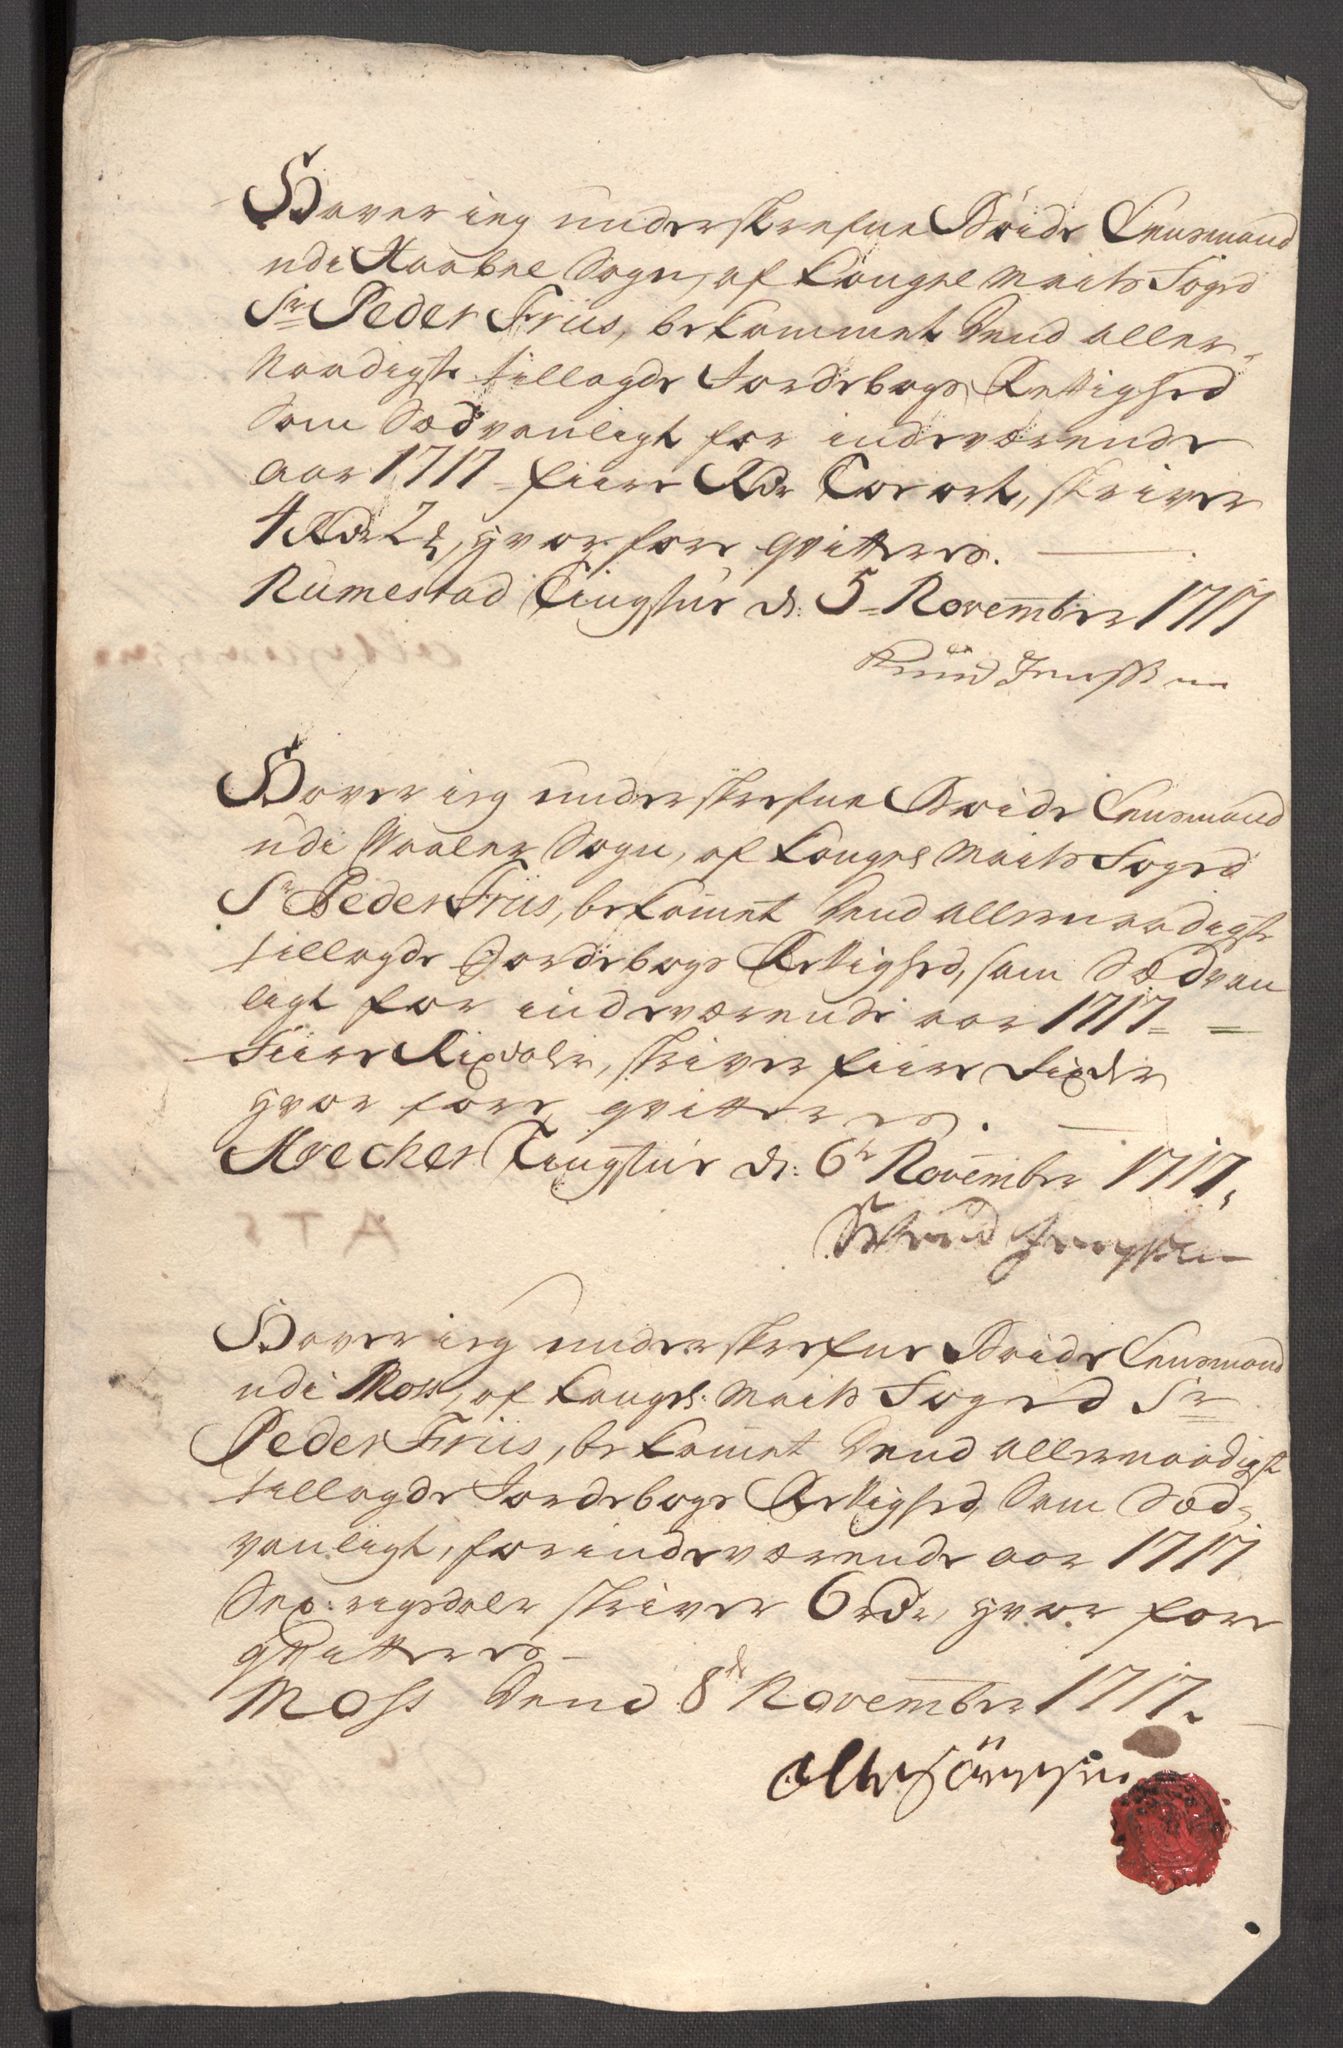 Haver ieg underskrefne Böide Lensmand
udi Raabne Sogn, af Kongel Maits Foged
Sr Peder Friis, bekommet Dend aller-
Naadigste tillagde Jordebogs Rettighed
Som Sædvanligt for indeværende
aar 1717 - fiire Rdr Toe ort, skriver
4 Rdr 2 ort, hvor fore qvitteres.
Rumestad Tingstue d: 5 November 1717
Knud Jenssen
Haver ieg underskrefne Böide Lensmand
udi Waaler Sogn, af Kongel Maits Foged
Sr Peder Friis, bekommet Dend allernaadigste
tillagde Jordebogs Rettighed, som Sædvan
ligt for indeværende aar 1717 -
Fiire Rixdaler, skriver fiire Rixdr
hvor fore qvitteres.
Kircher Tingstue d: 6te November 1717,
Jenssen
Haver ieg underskrefne Böide Lensmand
udi Moss, af Kongel: Maits Foged Sr
Peder Friis, bekommet Dend allernaadigst
tillagde Jordebogs Rettighed, Som Sæd-
vanligt, for indeværende aar 1717
Sex: rigsdaler skriver 6 rdr, hvor fore
qvitteres
Moss Dend 8de November 1717.
Olle Sörensen